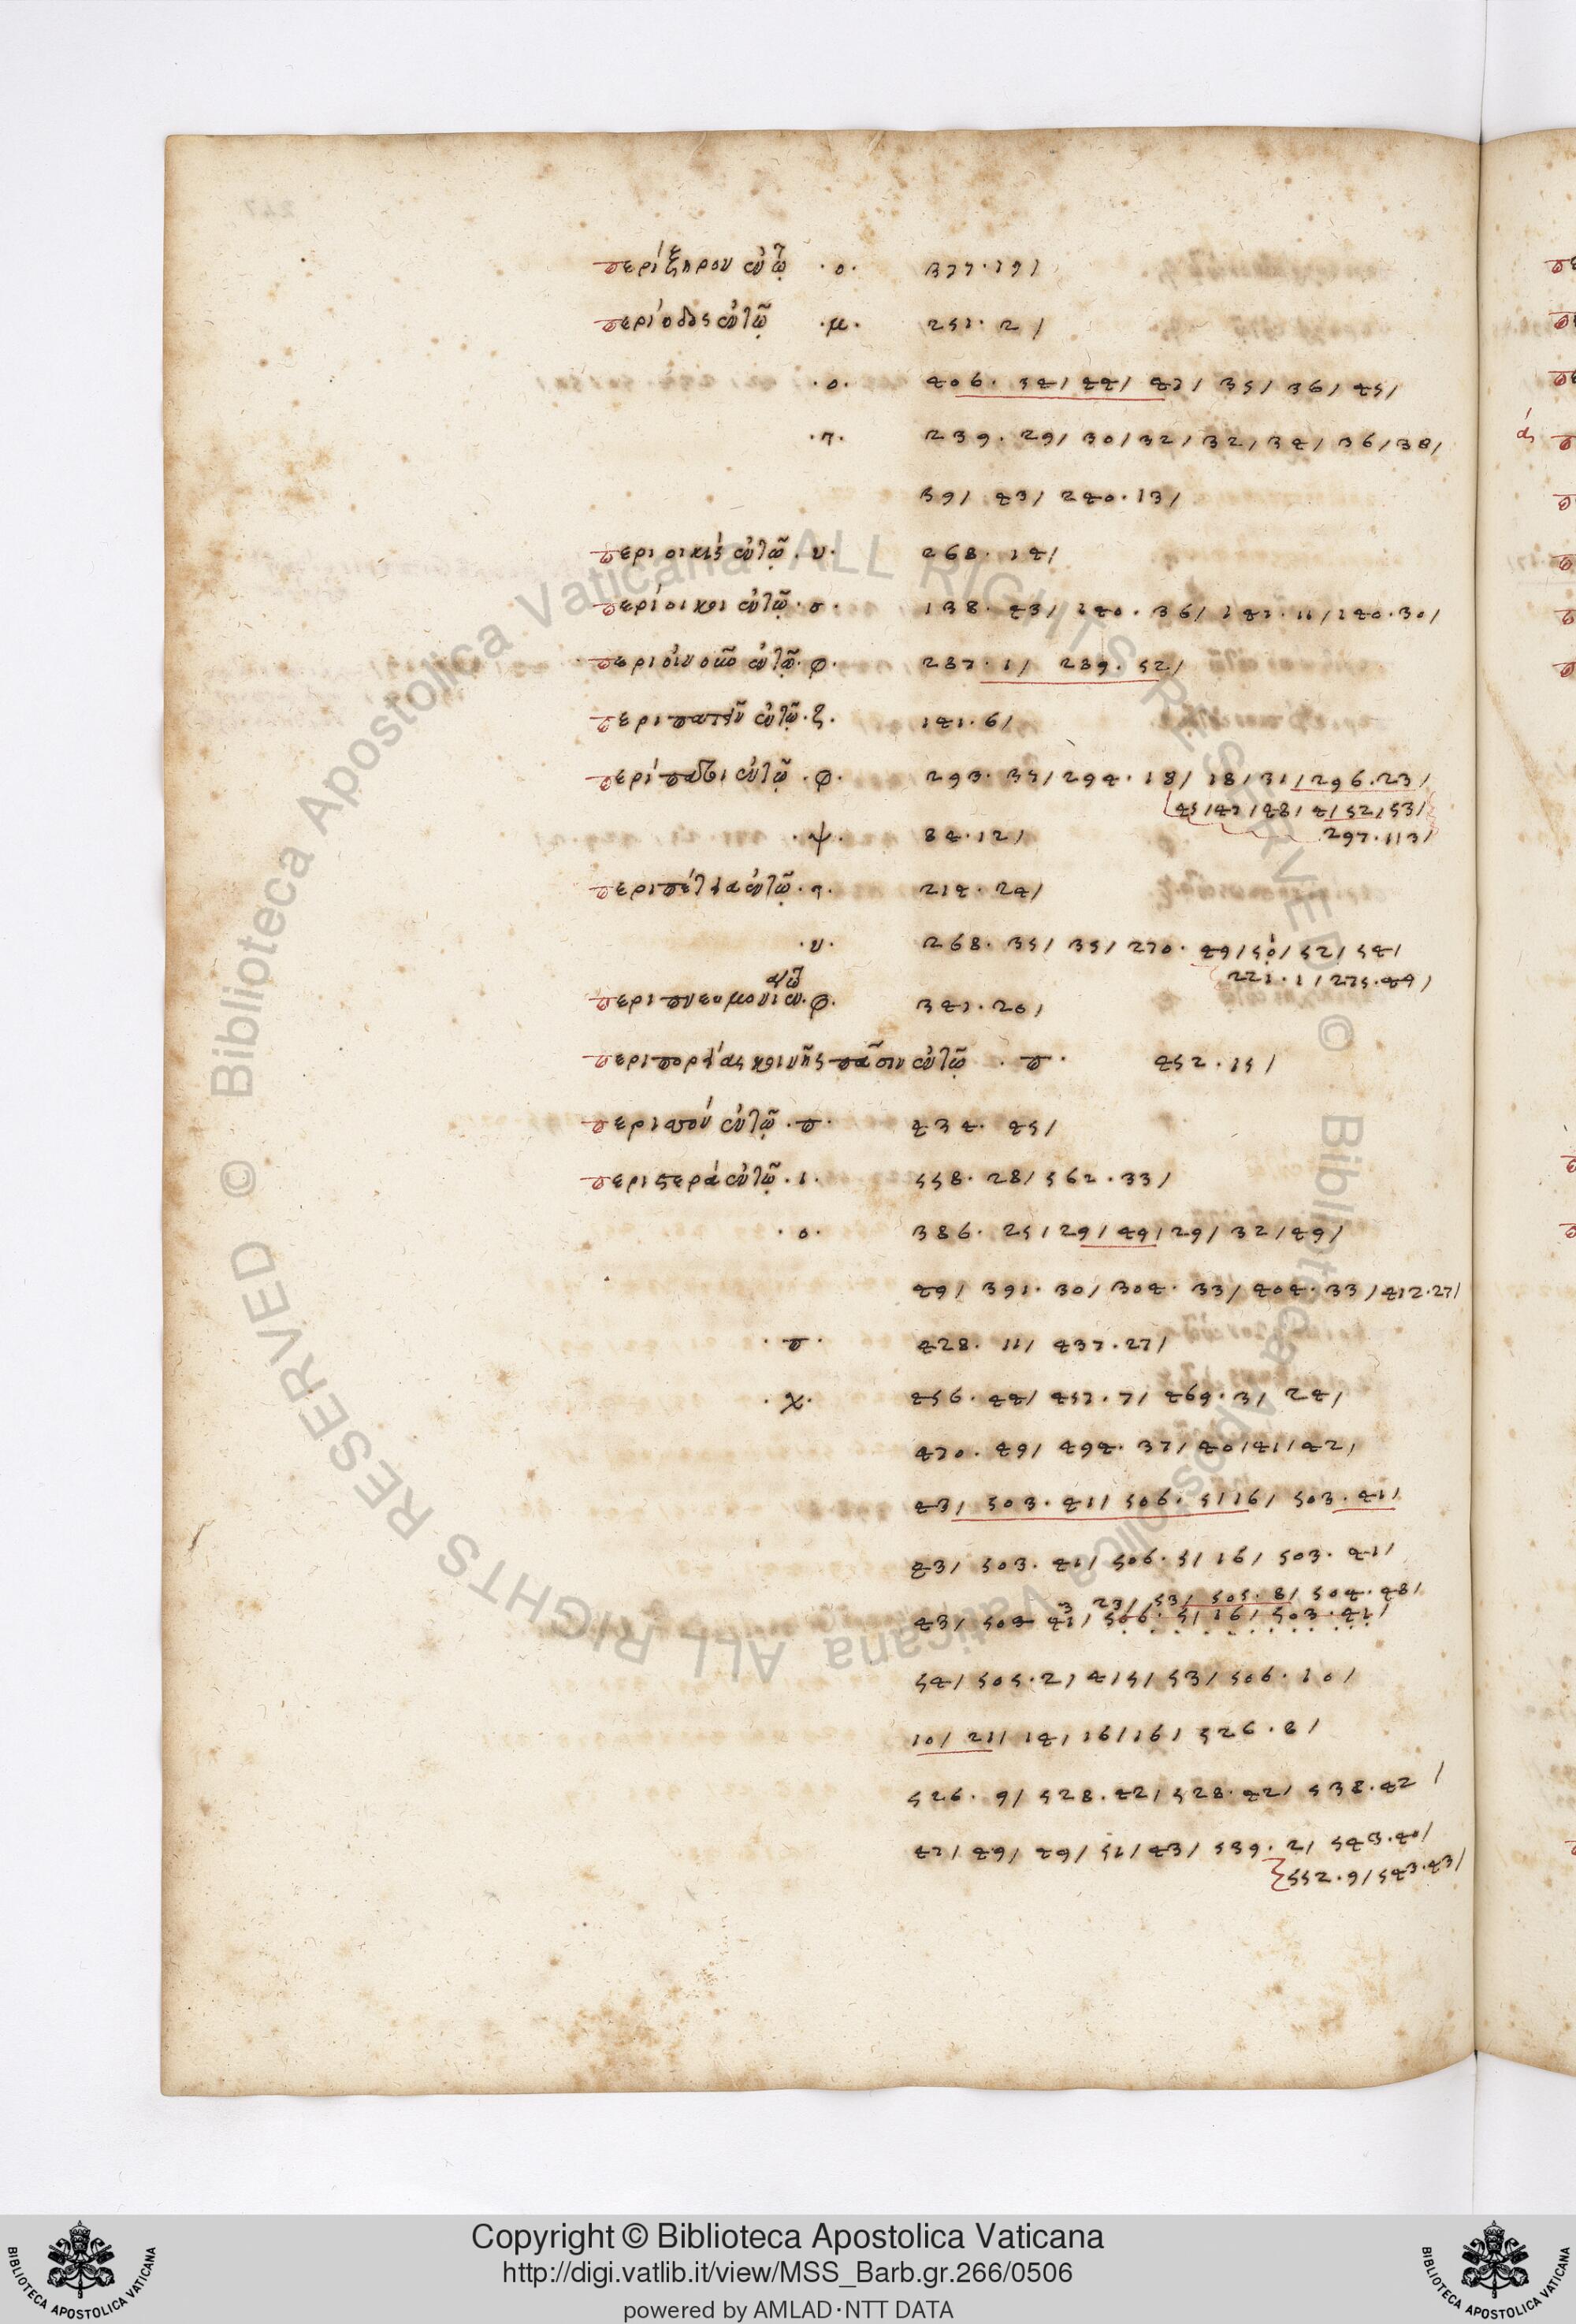 περίξηρον ἐν τῷ · ο · 377 · 19 /
περίοδος ἐν τῷ · μ · 251 · 2 /
· ο · 406 · 34 / 44 / 47 / 35 / 36 / 45 /
· τ · 239 · 29 / 30 / 32 / 32 / 34 / 36 / 38 /
39 / 43 / 240 · 13 /
περιοικὶς ἐν τῷ · υ · 268 · 14 /
περίοικοι ἐν τῷ · σ · 138 · 43 / 140 · 36 / 141 · 11 / 140 · 30 /
ἐν τῷ · φ · 287 · 1 / 289 · 52 /
περιπατεῖν ἐν τῷ · ζ · 141 · 6 /
ἐν τῷ · φ · 293 · 35 / 294 · 18 / 18 / 31 / 296 · 23 /
45 / 47 / 48 / 4 / 52 / 53 /
297 · 113 /
· ψ · 84 · 12 /
περιπέτεια ἐν τῷ · τ · 214 · 24 /
· υ · 268 · 35 / 35 / 270 · 49 / 50 / 52 / 54 /
271 · 1 / 275 · 49 /
περιπνευμονία ἐν τῷ · φ · 341 · 20 /
περὶ πορείας κοινῆς πᾶσιν ἐν τῷ · π · 452 · 15 /
περιπου ἐν τῷ · π · 434 · 45 /
περιστερὰ ἐν τῷ · ι · 558 · 28 / 562 · 33 /
· ο · 386 · 25 / 29 / 49 / 29 / 32 / 49 /
49 / 391 · 30 / 304 · 33 / 404 · 33 / 412 · 27 /
· π · 428 · 11 / 437 · 27 /
· χ · 456 · 44 / 457 · 7 / 469 · 3 / 24 /
470 · 49 / 494 · 37 / 40 / 41 / 42 /
43 / 503 · 41 / 506 · 5 / 16 / 503 · 41 /
43 / 503 · 41 / 506 · 5 / 16 / 503 · 41 /
3 23 / 53 / 505 · 8 / 504 · 48 /
43 / 503 41 / 506 · 5 / 16 / 503 · 41 /
54 / 505 · 2 / 4 / 5 / 53 / 506 · 10 /
10 / 21 / 14 / 16 / 16 / 526 · 8 /
526 · 9 / 528 · 42 / 528 · 42 / 538 · 42 /
47 / 49 / 49 / 51 / 43 / 539 · 2 / 543 · 40 /
552 · 9 / 543 · 43 /
© Biblioteca Apostolica Vaticana ALL RIGHTS RESERVED
© Biblioteca Apostolica Vaticana ALL RIGHTS RESERVED
Copyright © Biblioteca Apostolica Vaticana
http://digi.vatlib.it/view/MSS_Barb.gr.266/0506
powered by AMLAD·NTT DATA
BIBLIOTECA APOSTOLICA VATICANA
BIBLIOTECA APOSTOLICA VATICANA